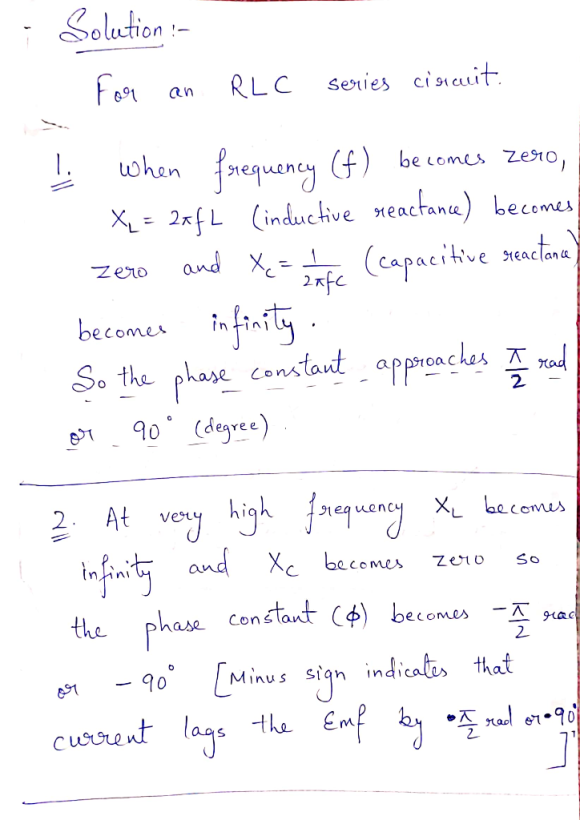 Solution :-
For an RLC series circuit.
1. when frequency (f) becomes zero,
X_L = 2πfL (inductive reactance) becomes
zero and X_c = 1/2πfc (capacitive reactance)
becomes infinity.
So the phase constant approaches π/2 rad
or 90° (degree).
2. At very high frequency X_L becomes
infinity and X_c becomes zero so
the phase constant (ϕ) becomes -π/2 rad
or -90° [Minus sign indicates that
current lags the Emf by π/2 rad or 90°]